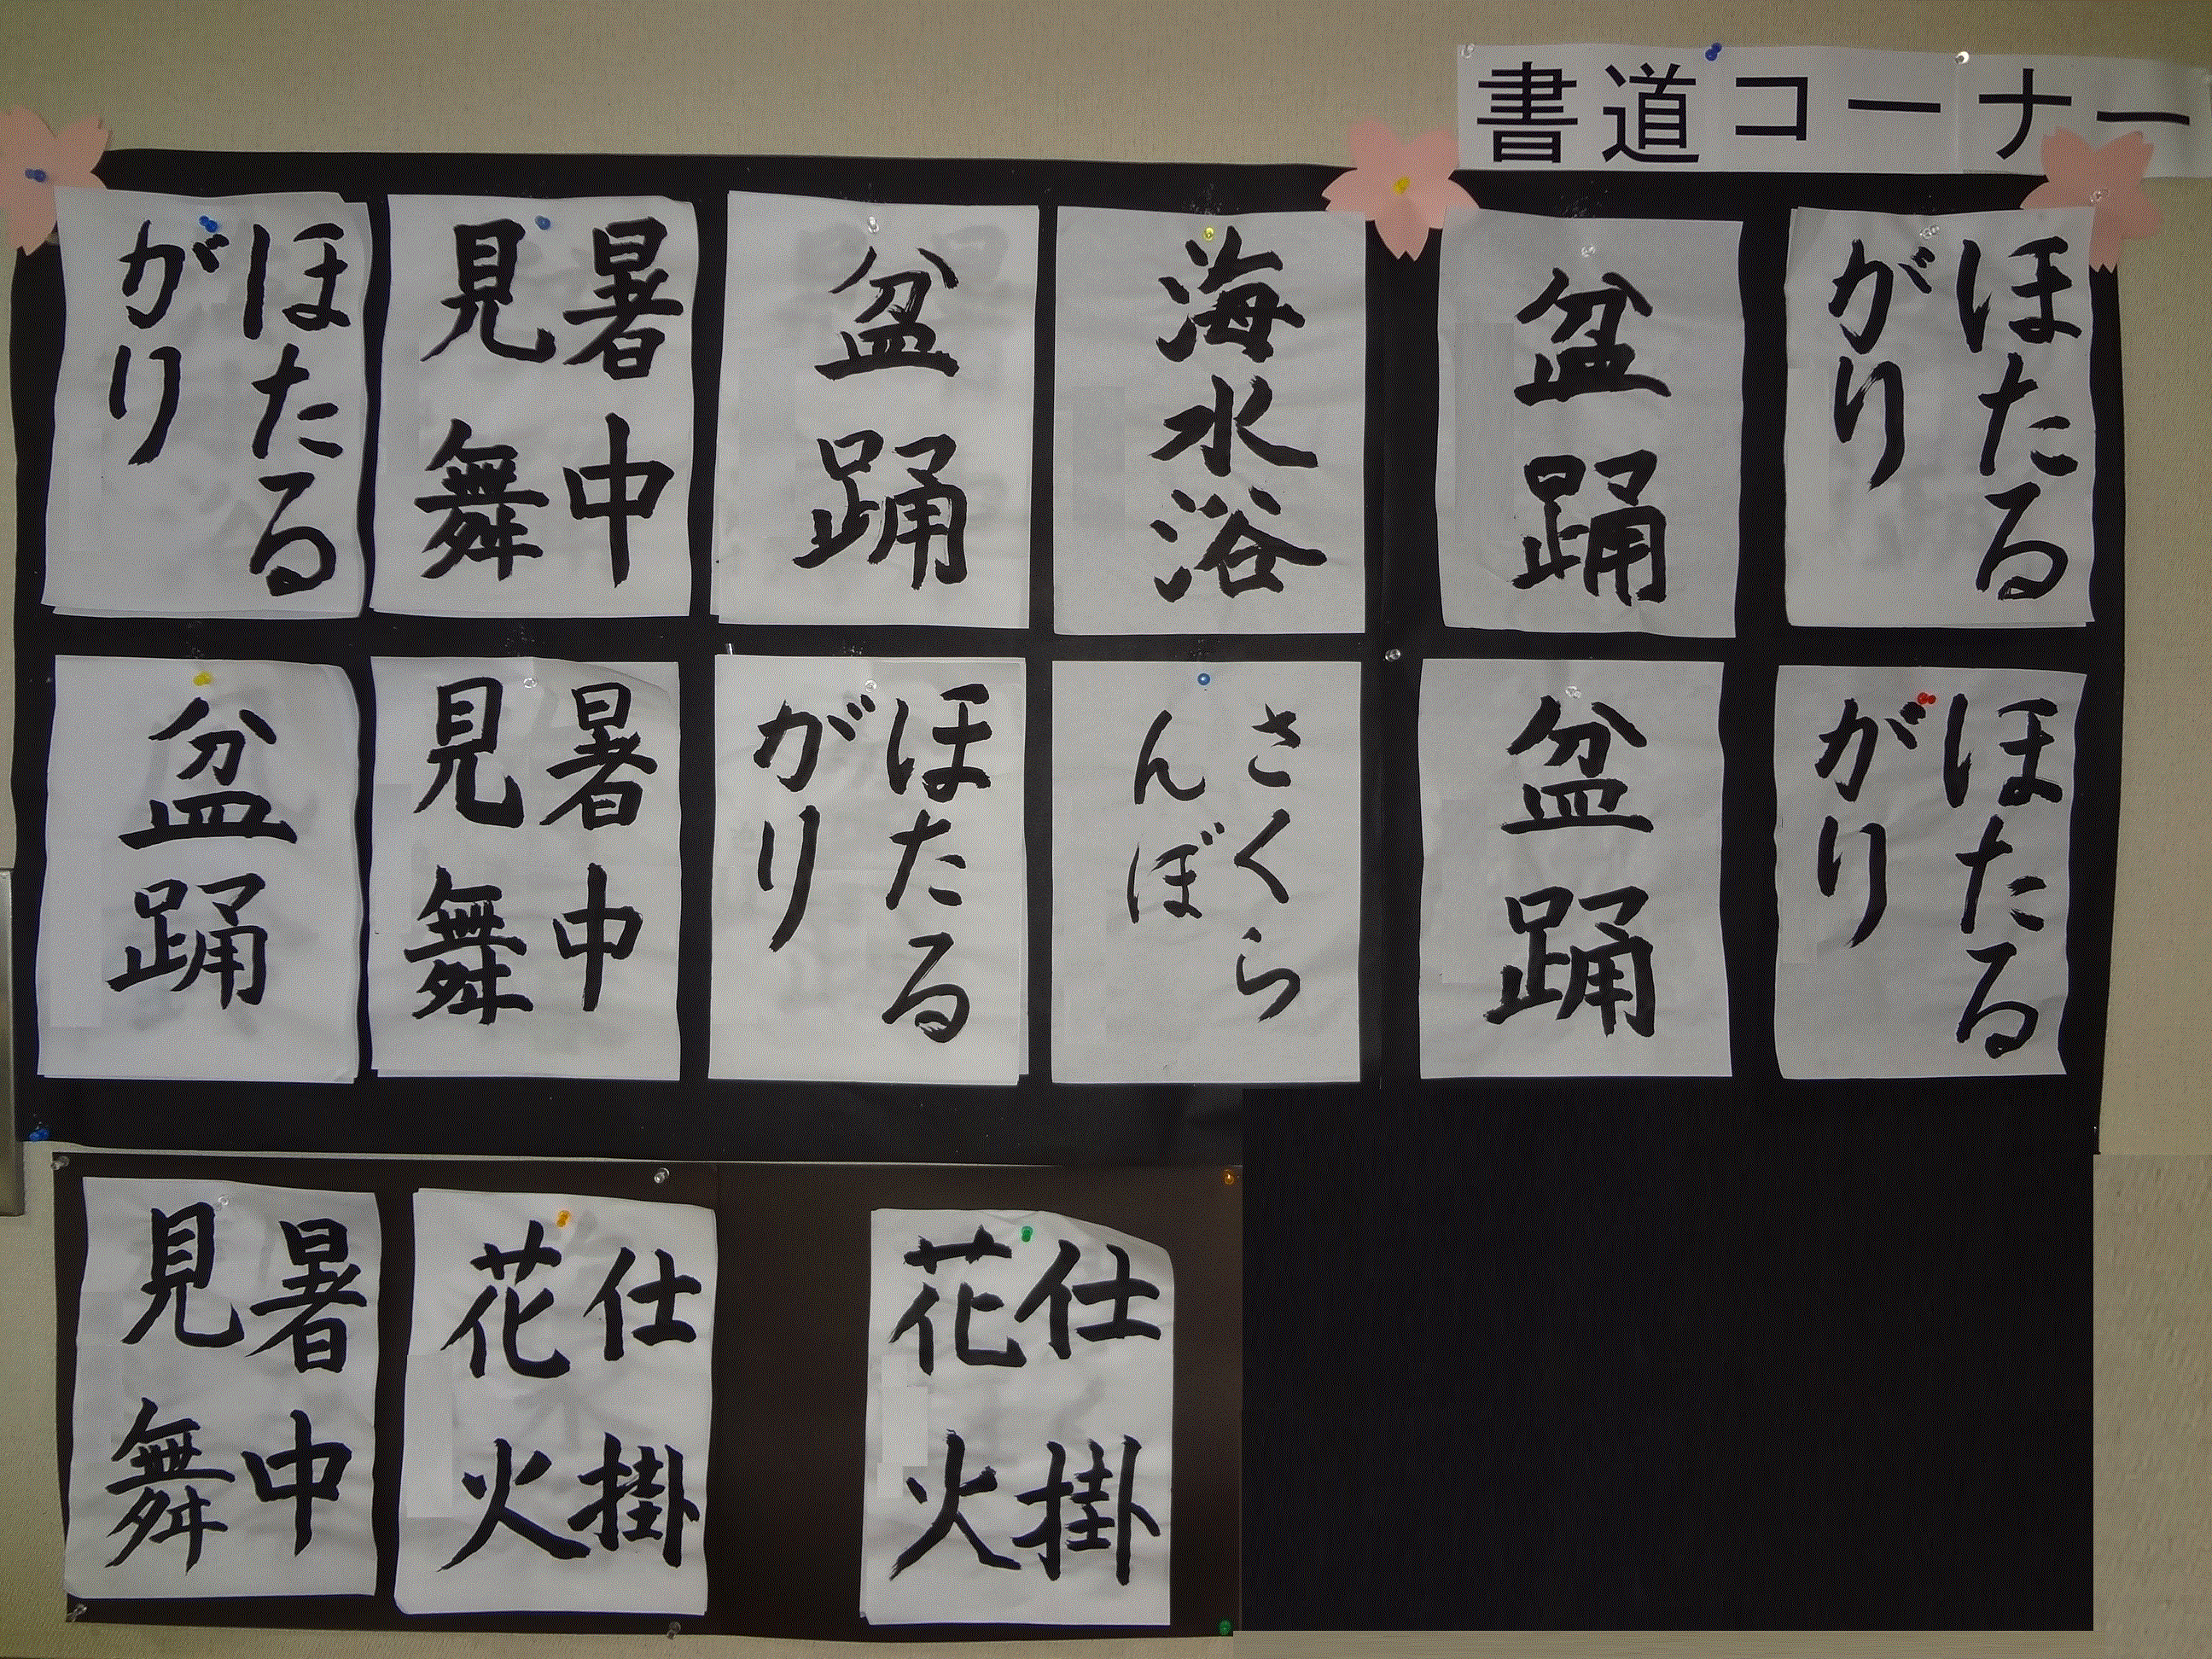 書道コーナー
ほたる
がり
暑中
見舞
盆踊
海水浴
盆踊
ほたる
がり
盆踊
暑中
見舞
ほたる
がり
さくら
んぼ
盆踊
ほたる
がり
暑中
見舞
仕掛
花火
仕掛
花火